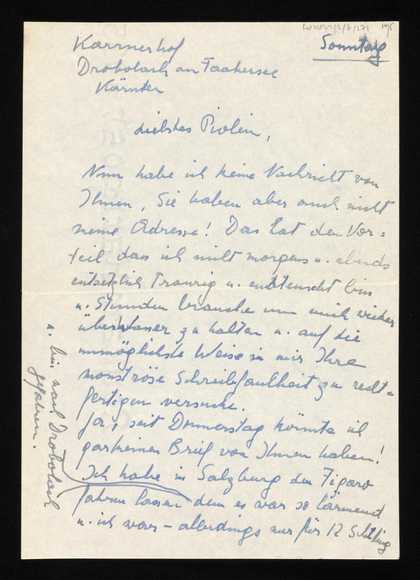 Sonntag
Karnerhof
Drobolach am Faakersee
Kärnten
Liebstes Violein,
Nun habe ich keine Nachricht von
Ihnen, Sie haben aber auch nicht
meine Adresse! Das hat den Vor-
teil das ich nicht morgens u. abends
entsetzlich traurig u. enttäuscht bin
u. Stunden brauche um mich wieder
über Wasser zu halten u. auf die
unmöglichste Weise in mir Ihre
monströse Schreibfaulheit zu recht-
fertigen versuche.
Ja, seit Donnerstag könnte ich
garkeinen Brief von Ihnen haben!
Ich habe in Salzburg den Figaro
fahren lassen denn es war so lärmend
u. ich war – allerdings nur für 12 Schilling
u. bin nach Drobolach
gefahren.